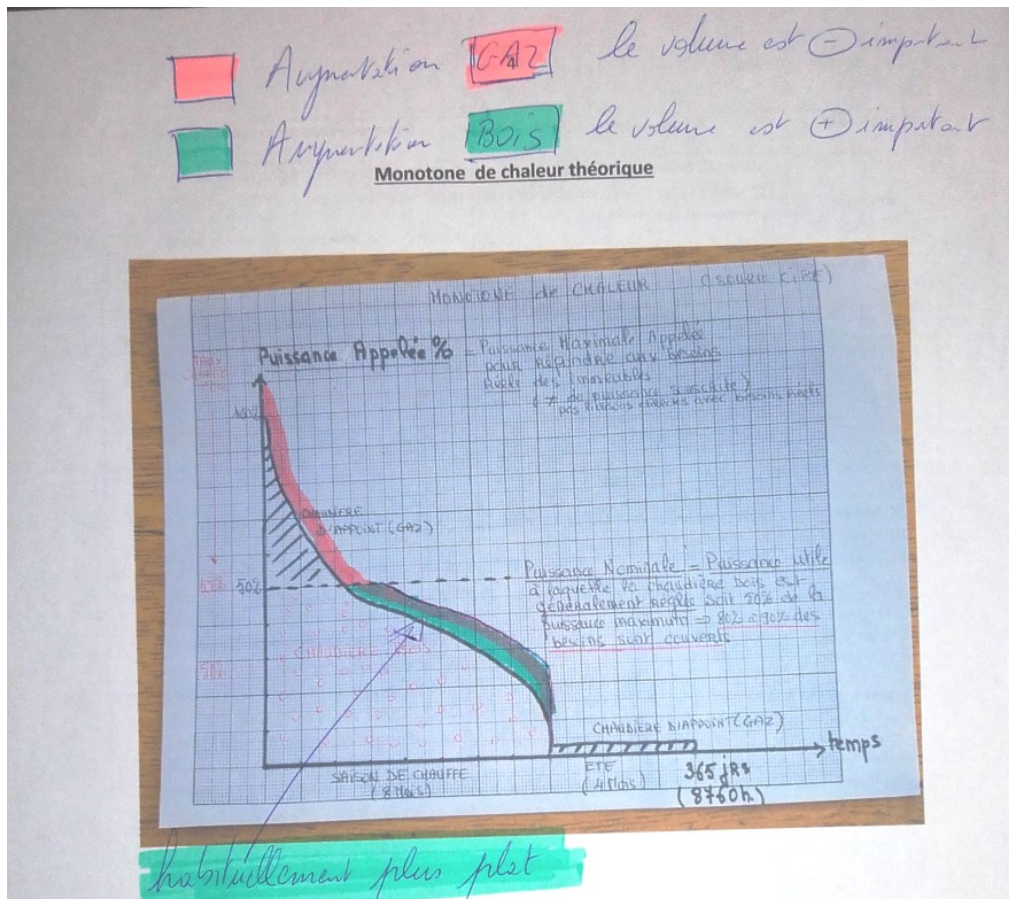 Augmentation GAZ le volume est ⊖ important
Augmentation BOIS le volume est ⊕ important
Monotone de chaleur théorique
MONOTONE de CHALEUR (SOURCE CIBE)
Puissance Appelée % = Puissance Maximale Appelée
pour Répondre aux besoins
Réels des immeubles
(≠ de puissance souscrite)
pas toujours avec besoins réels
100%
CHAUDIÈRE
D'APPOINT (GAZ)
50%
Puissance Nominale = Puissance utile
à laquelle la chaudière bois est
généralement réglée soit 50% de la
puissance maximum => 80% à 90% des
besoins sont couverts
CHAUDIÈRE BOIS
50%
CHAUDIÈRE D'APPOINT (GAZ)
temps
SAISON DE CHAUFFE
(8 Mois)
ETE
(4 Mois)
365 jRS
(8760h.)
habituellement plus plat